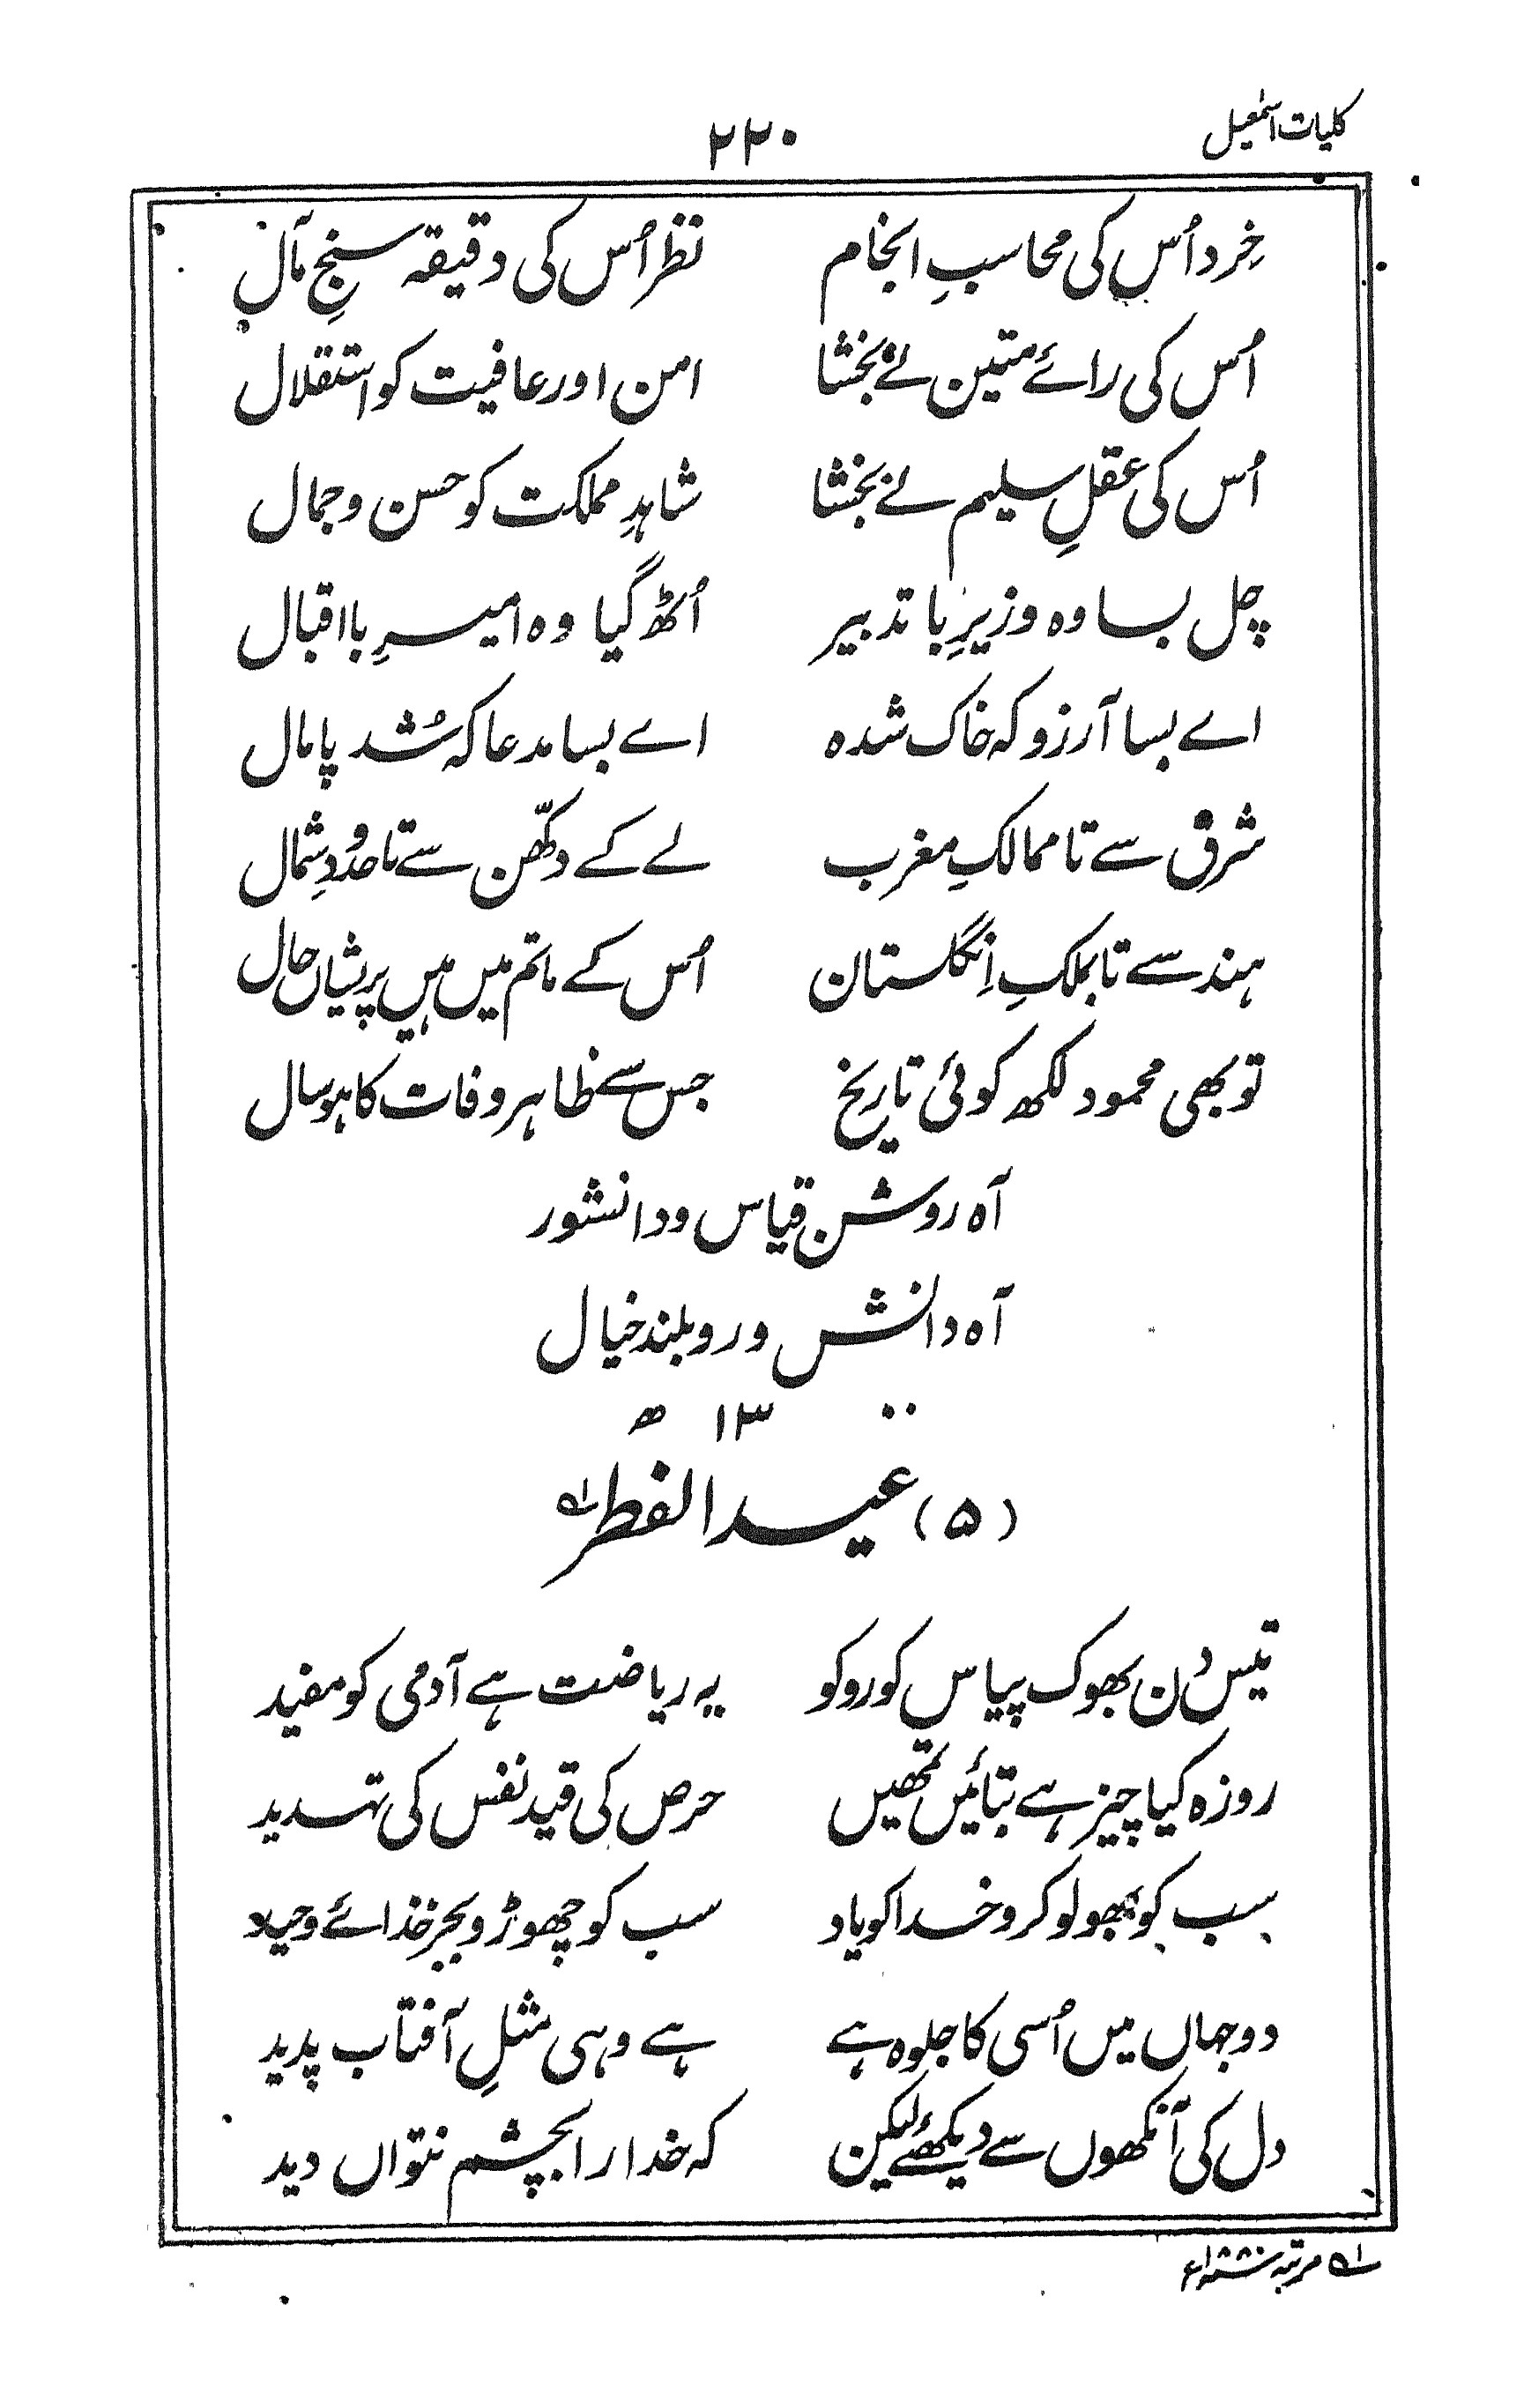 کلیات اسمٰعیل
۲۲۰
خِرد اُس کی محاسبِ انجام نظر اُس کی دقیقہ سنجِ مآل
اُس کی رائے متین نے بخشا امن اور عافیت کو استقلال
اُس کی عقلِ سلیم نے بخشا شاہدِ مملکت کو حسن و جمال
چل بسا وہ وزیرِ با تدبیر اُٹھ گیا وہ امیرِ با اقبال
اے بسا آرزو کہ خاک شدہ اے بسا مدعا کہ شُد پامال
شرق سے تا ممالکِ مغرب لے کے دکّھن سے تا حدُودِ شمال
ہند سے تا بملکِ اِنگلستان اُس کے ماتم میں ہیں پریشاں حال
تو بھی محمود لکھ کوئی تاریخ جس سے ظاہر وفات کا ہو سال
آہ روشن قیاس و دانشور
آہ دانش ور و بلند خیال
۱۳۰۰ ھ
(۵) عید الفطر ؎۱
تیس دن بھوک پیاس کو روکو یہ ریاضت ہے آدمی کو مفید
روزہ کیا چیز ہے بتائیں تمھیں حرص کی قید نفس کی تہدید
سب کو بھولو کرو خدا کو یاد سب کو چھوڑو بجز خدائے وحید
دو جہاں میں اُسی کا جلوہ ہے ہے وہی مثلِ آفتاب پدید
دل کی آنکھوں سے دیکھئے لیکن کہ خدا را بچشم نتواں دید
؎۱ مرتبہ